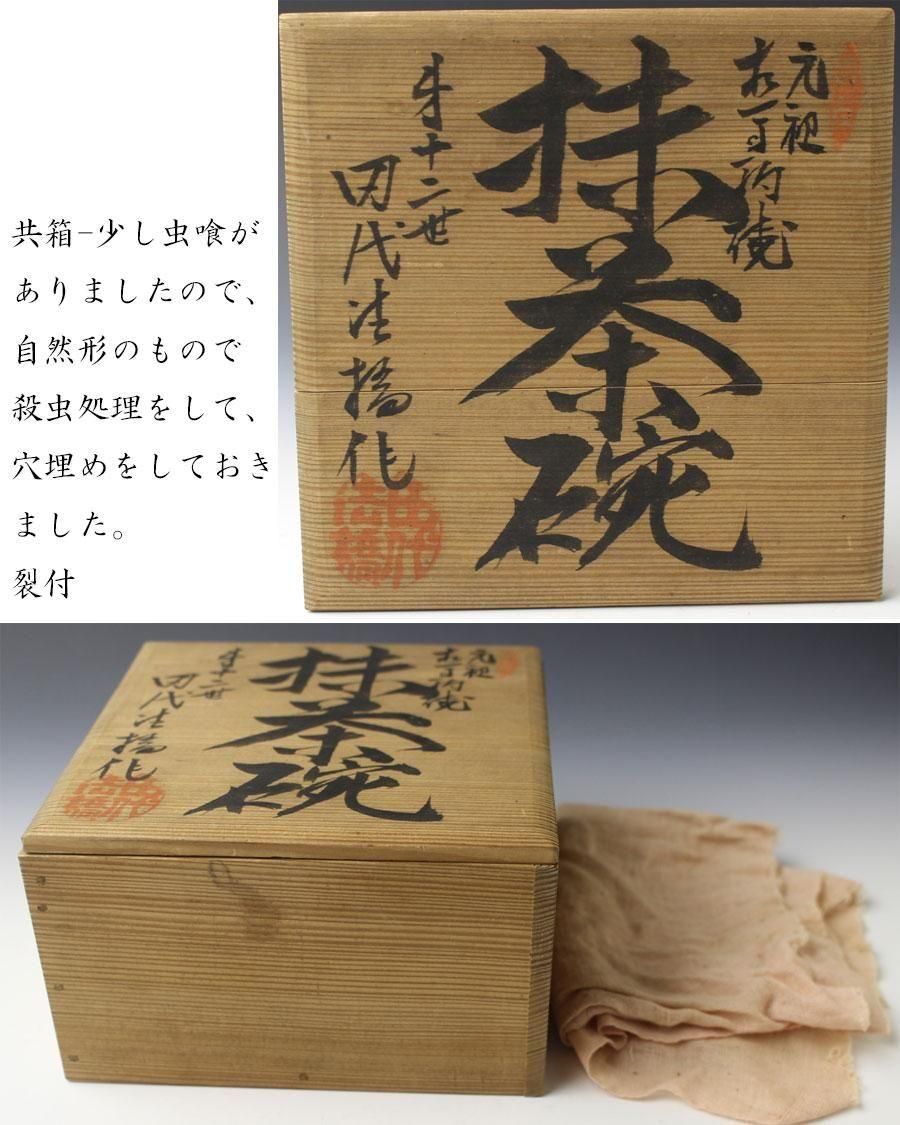 共箱-少し虫喰が
ありましたので、
自然形のもので
殺虫処理をして、
穴埋めをしておき
ました。
裂付
元祖
抹茶碗
才十二世
田代法橋作
田代
法橋
元祖
抹茶碗
才十二世
田代法橋作
田代
法橋